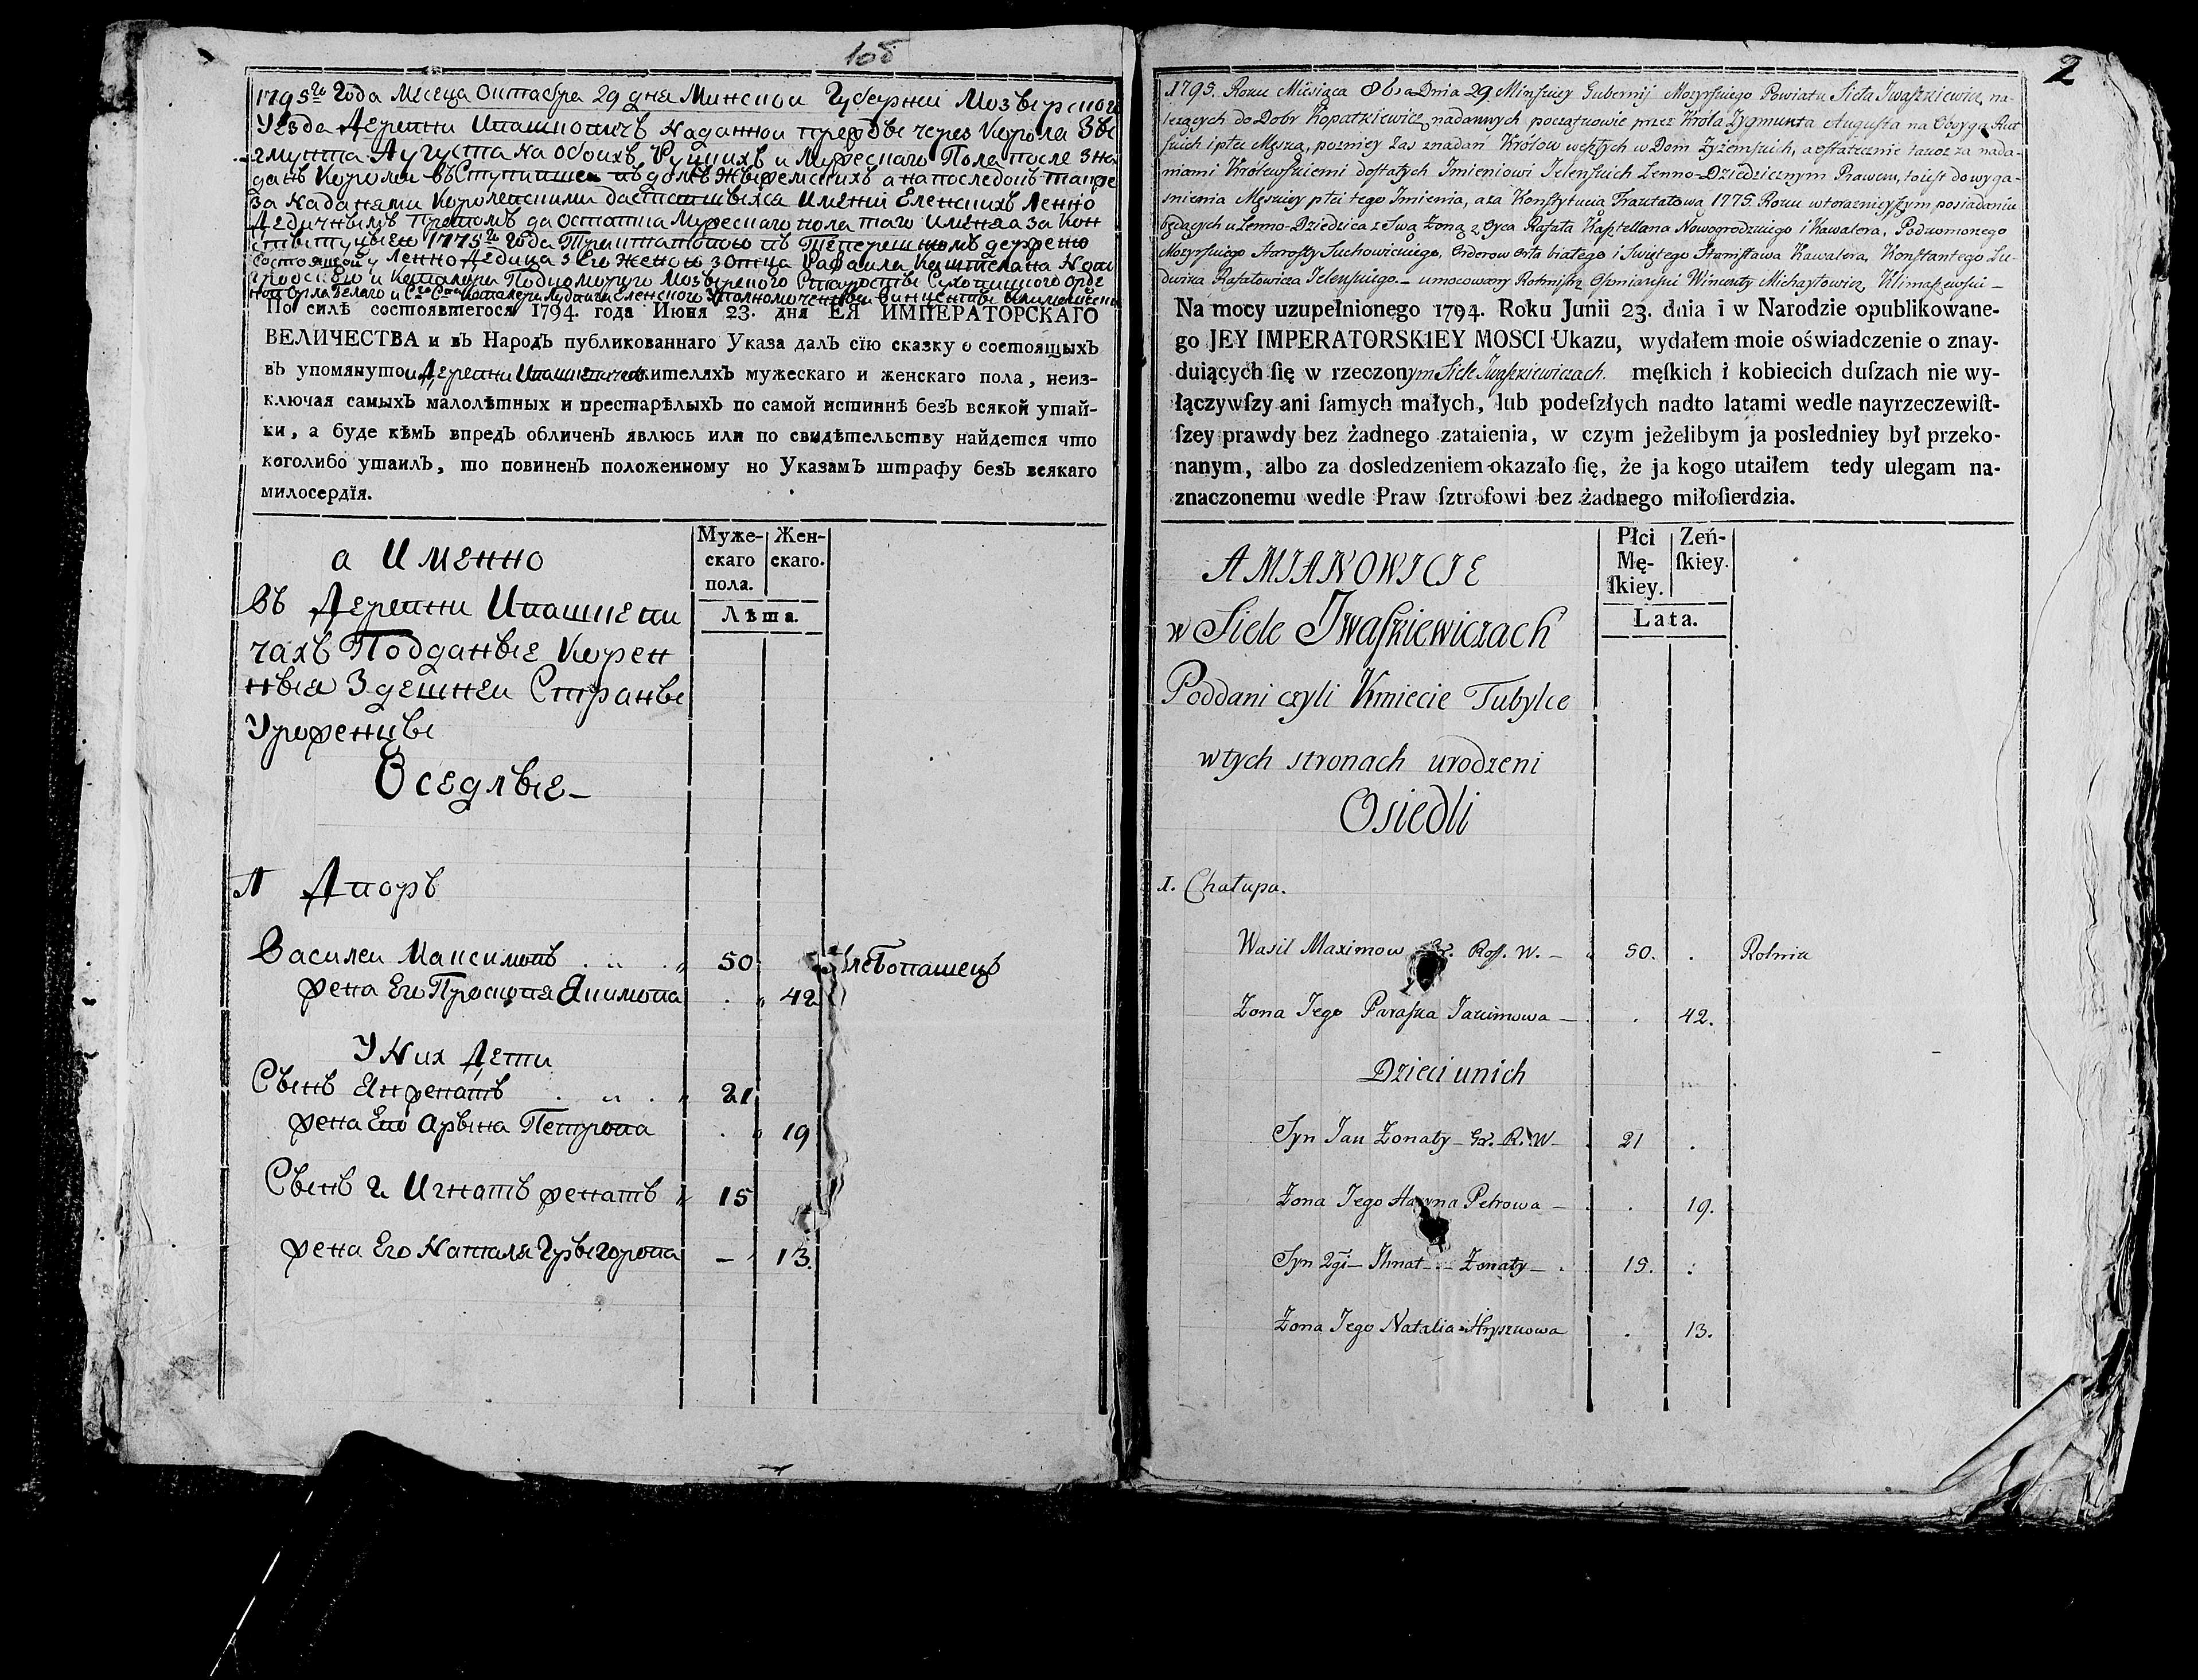 1об
1795го Года месеца октабра 29 дня Минскои Губернии Мозырского
Уезда Деревни Ивашковичъ Наданнои преждЪ через Короля Зы
гмунта Августа на обоихъ Руцкихъ и Мужескаго Пола после з на
данъ Королеи въ домЪ Жыжемскихъ а на последокъ так же
За Наданями Королевскими Имений Еленскихъ Ленно
Дедичнымъ Правомъ до остатка Мужескаго пола таго Именяа за Кон
ституцыею 1775го Года в Теперешномъ держеню
состоящой у Ленно Дедица з Его Женою з отца Рафаила Каштеляна Нов
По силѣ состоявшегося 1794. года Июня 23. дня ЕЯ ИМПЕРАТОРСКАГО
ВЕЛИЧЕСТВА и въ Народъ публикованнаго Указа далъ сїю сказку о состоящыхъ
въ упомянутои Деревни жителяхъ мужескаго и женскаго пола, неиз-
ключая самыхъ малолѣтныхъ и престарѣлыхъ по самой истиннѣ безъ всякой утай-
ки, а буде кѣмъ впредъ обличенъ явлюсь или по свидѣтельству найдется что
коголибо утаилъ, то повиненъ положенному но Указамъ штрафу безъ всякаго
милосердїя.
Муже-
скаго
пола.
Жен-
скаго.
Лѣта.
а Именно
въ Деревни Ивашкеви
чахъ Подданые Корен
ныя Здешнеи Страны
Уроженцы
Оседлые
1 Дворъ
Василеи Максимовъ 50 Хлебопашецъ
жена Его Проскопя Якимова 42
У Них Дети
Сынъ Ян женатъ 21
жена Его Арына Петрова 19
Сынъ 2 Игнатъ женатъ 15
жена Его Наталя Грыгорова 13.
2
1795. Roku Miesiąca 8bra Dnia 29 Minskiey Gubernij Mozyrskiego Powiatu Sieła Jwaszkiewicz, na-
leżących do Dobr Kopatkiewicz, nadannych początkowie przez Krola Zygmunta Augusta na Oboyga Rut
skich i płci Męską, pozniey zas znadań Królow weszłych w Dom Zyżemskich, a ostatecznie takoż za nada-
niami Królewskiemi dostałych Jmieniowi Jelenskich Lenno-Dziedzicznym Prawem, to iest do wyga-
snienia Męskiey płci tego Jmienia, a za Konstytucią Traktatową 1775. Roku w teraznieyszym posiadaniu
będących u Lenno-Dziedzica z Swą Żoną z Oyca Rafała Kasztellana Nowogrodzkiego i Kawalera, Podkomorzego
Mozyrskiego Starosty Suchowickiego, Orderow Orła białego i Swiętego Stanisława Kawalera, Konstantego Lu-
dwika Rafałowicza Jelenskiego. – umocowany Rotmistrz Oszmianski Wincenty Michayłowicz Klimaszewski –
Na mocy uzupełnionego 1794. Roku Junii 23. dnia i w Narodzie opublikowane-
go JEY IMPERATORSKIEY MOSCI Ukazu, wydałem moie oświadczenie o znay-
duiących ſię w rzeczonym Siele Jwaszkiewiczach. męſkich i kobiecich duſzach nie wy-
łączywſzy ani ſamych małych, lub podeſzłych nadto latami wedle nayrzeczewiſt-
ſzey prawdy bez żadnego zataienia, w czym jeżelibym ja posledniey był przeko-
nanym, albo za dosledzeniem okazało ſię, że ja kogo utaiłem tedy ulegam na-
znaczonemu wedle Praw ſztrofowi bez żadnego miłoſierdzia.
Płci
Mę-
ſkiey.
Zeń-
ſkiey.
Lata.
AMIANOWICIE
w Siele Jwaszkiewiczach
Poddani czyli Kmiecie Tubylce
w tych stronach urodzeni
Osiedli
1. Chałupa.
Wasil Maximow Gr. Ross. W. – 50. Rolnik
Żona Jego Paraska Jakimowa – 42.
Dzieci u nich
Syn Jan Żonaty – Gr. R. W. 21
Żona Jego Hawna Petrowa – 19.
Syn 2gi – Jhnat – Żonaty – 15.
Żona Jego Natalia Hryszkowa 13.